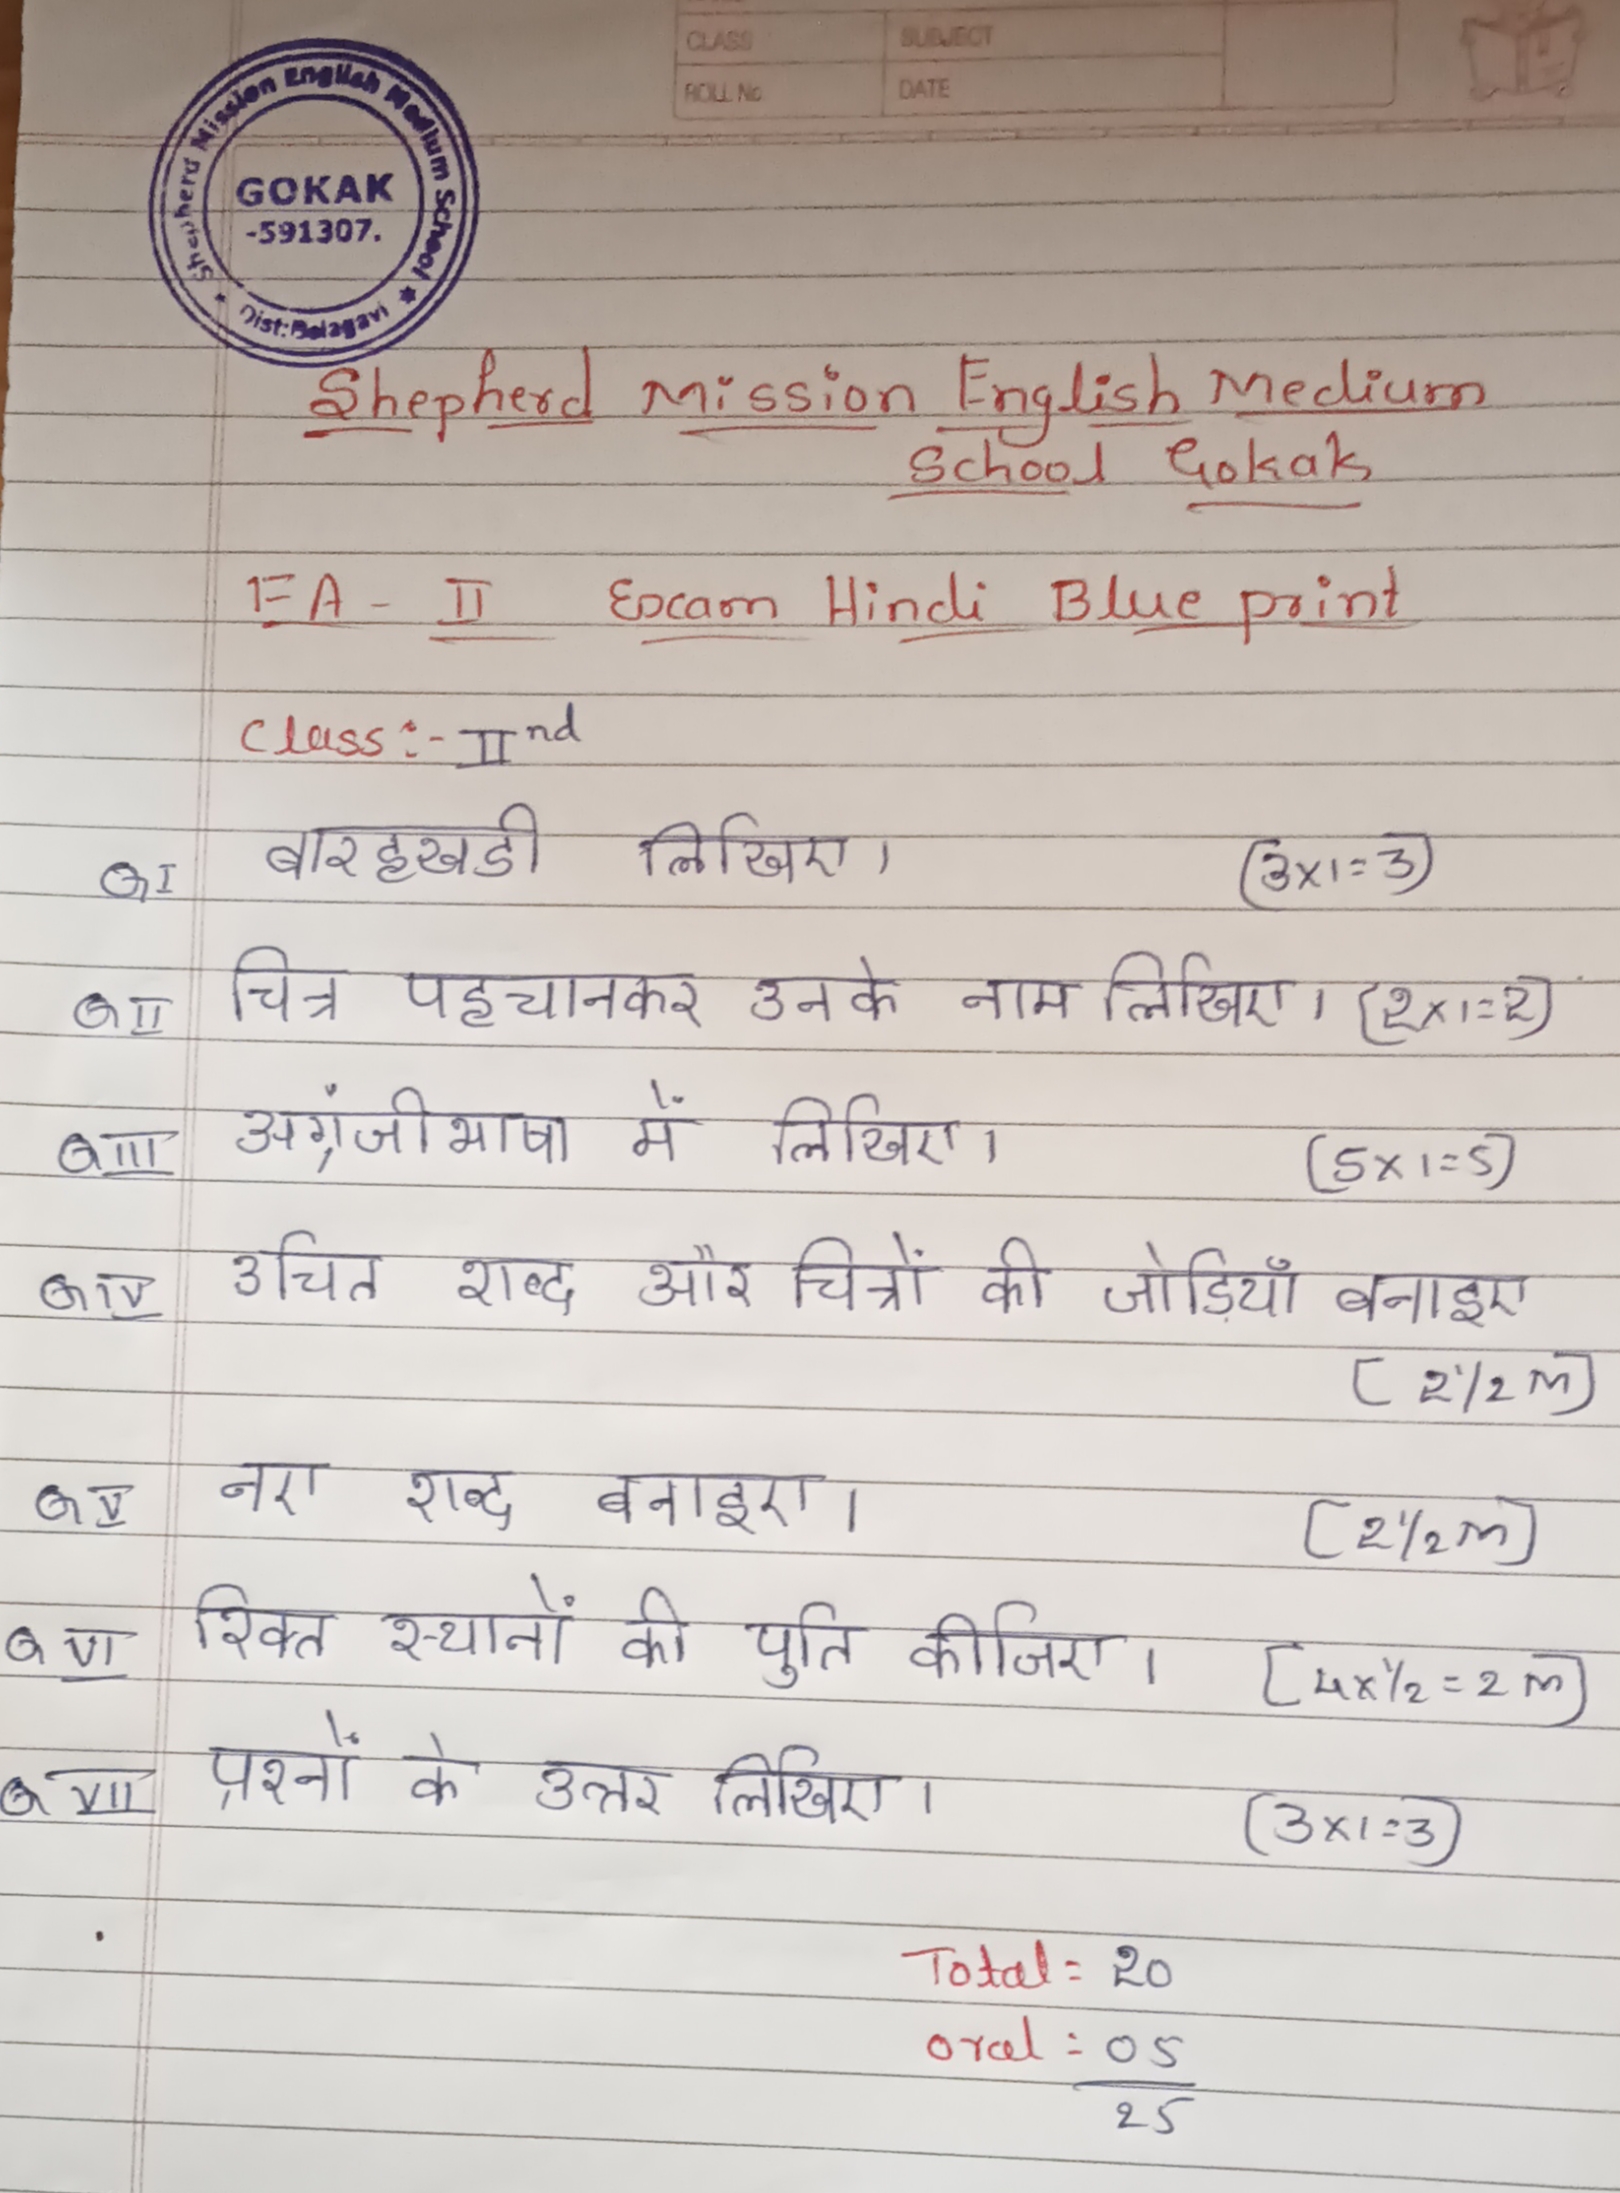 CLASS SUBJECT
ROLL No DATE
Shepherd Mission English Medium School
GOKAK
-591307.
Dist: Belagavi
Shepherd Mission English Medium
School Gokak
FA - II Exam Hindi Blue print
Class :- IInd
Q I बारहखडी लिखिए। (3x1=3)
Q II चित्र पहचानकर उनके नाम लिखिए। (2x1=2)
Q III अग्रंजी भाषा में लिखिए। (5x1=5)
Q IV उचित शब्द और चित्रों की जोड़ियाँ बनाइए
[2 1/2 m]
Q V नए शब्द बनाइए। [2 1/2 m]
Q VI रिक्त स्थानों की पुति कीजिए। [4x1/2 = 2 m]
Q VII प्रश्नों के उत्तर लिखिए। (3x1=3)
Total = 20
oral = 05
25